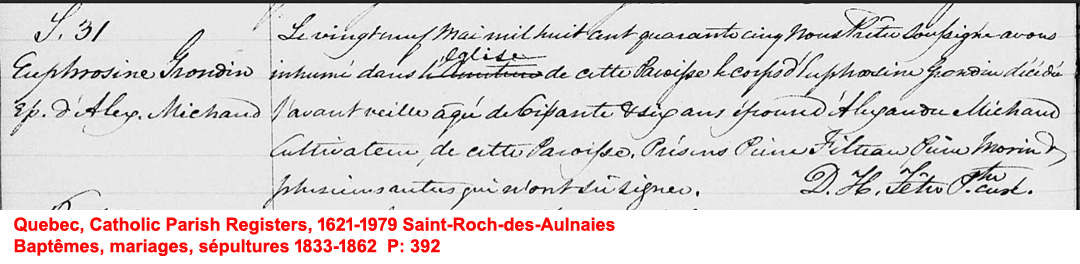 S. 31
Euphrosine Grondin
Ep. d'Alex. Michaud
Le vingt neuf Mai mil huit cent quarante cinq Nous Prêtre soussigné avons
église
inhumé dans l' de cette Paroisse le corps d'Euphrosine Grondin décédée
l'avant veille agée de soixante & six ans épouse d'Alexandre Michaud
Cultivateur de cette Paroisse. Présens Pierre Filteau Pierre Morin &
plusieurs autres qui n'ont su signer. D. H. Têtu Ptre curé.
Quebec, Catholic Parish Registers, 1621-1979 Saint-Roch-des-Aulnaies
Baptêmes, mariages, sépultures 1833-1862 P: 392